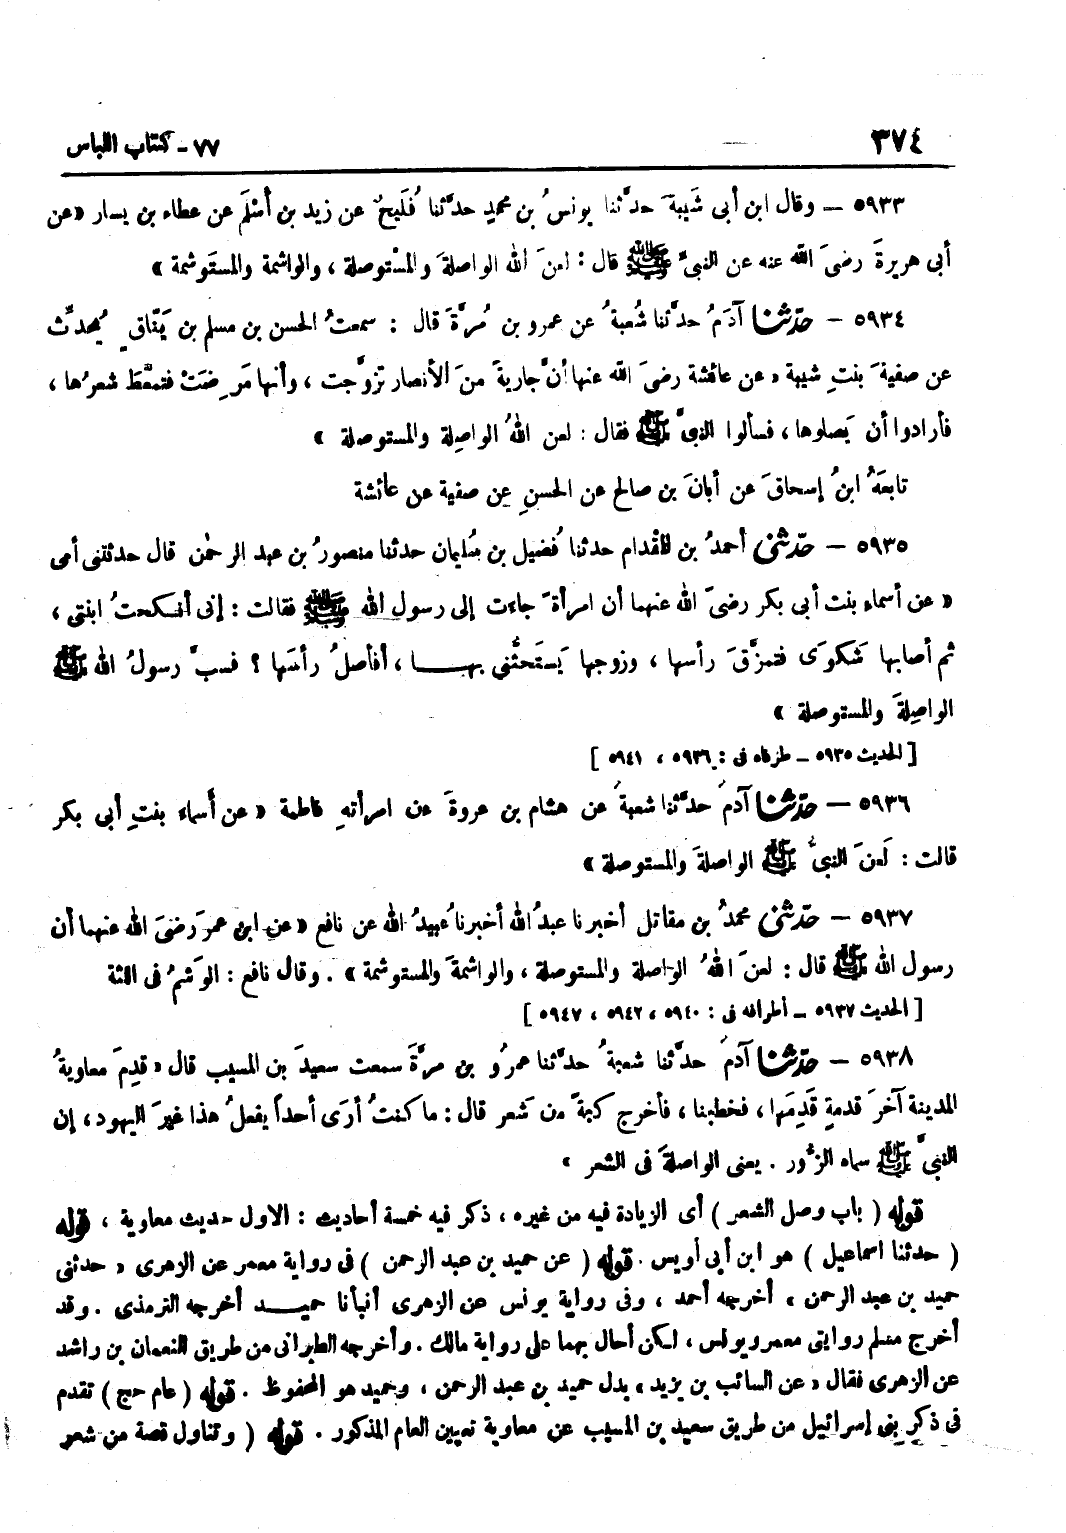 ٣٧٤
٧٧ - كتاب اللباس
٥٩٣٣ – وقال ابن أبى شَيبةَ حدَّثنا يونسُ بن محمدٍ حدَّثنا فُلَيحٌ عن زيد بن أسْلَم عن عطاء بن يسار «عن
أبى هريرةَ رضىَ الله عنه عن النبىِّ ﷺ قال : لعنَ الله الواصلةَ والمسْتوصلة ، والواشمة والمستَوشمة »
٥٩٣٤ – حدّثنا آدَمُ حدَّثنا شُعبةُ عن عمرو بن مُرَّةَ قال : سمعتُ الحسن بن مسلم بن يَنّاقٍ يُحدِّث
عن صفيةَ بنتِ شيبة « عن عائشة رضىَ الله عنها أنَّ جاريةَ منَ الأنصار تزوَّجت ، وأنها مَرِضَتْ فتمعَّطَ شعرُها ،
فأرادوا أن يَصلوها ، فسألوا النبىَّ ﷺ فقال : لعن اللهُ الواصِلة والمستوصلة »
تابعَهُ ابنُ إسحاقَ عن أبانَ بن صالح عن الحسنِ عن صفية عن عائشة
٥٩٣٥ – حدّثنى أحمدُ بن المقْدام حدثنا فُضيل بن سُليمان حدثنا منصورُ بن عبد الرحمٰن قال حدثتنى أمى
« عن أسماءِ بنت أبى بكر رضىَ الله عنهما أن امرأةَ جاءت إلى رسول الله ﷺ فقالت : إنى أنكحتُ ابنتى ،
ثم أصابها شَكوَى فتمزَّقَ رأسها ، وزوجها يَستَحثُّنى بهــا ، أفأصلُ رأسَها ؟ فسبَّ رسولُ الله ﷺ
الواصِلةَ والمستوصلة »
[ الحديث ٥٩٣٥ – طرفاه فى : ٥٩٣٦ ، ٥٩٤١ ]
٥٩٣٦ – حدّثنا آدمُ حدَّثنا شعبةُ عن هشام بن عروةَ عن امرأتهِ فاطمة « عن أسماء بنتِ أبى بكر
قالت : لَعنَ النبىُّ ﷺ الواصلةَ والمستوصلة »
٥٩٣٧ – حدّثنى محمدُ بن مقاتل أخبرنا عبدُ الله أخبرنا عُبيدُ الله عن نافع « عن ابن عمرَ رضىَ الله عنهما أن
رسول الله ﷺ قال : لعنَ اللهُ الواصلة والمستوصلة ، والواشمةَ والمستوشمة » . وقال نافع : الوَشمُ فى اللثة
[ الحديث ٥٩٣٧ – أطرافه فى : ٥٩٤٠ ، ٥٩٤٢ ، ٥٩٤٧ ]
٥٩٣٨ – حدّثنا آدمُ حدَّثنا شعبةُ حدَّثنا عمرُو بن مرَّةَ سمعت سعيدَ بن المسيب قال « قدِمَ معاويةُ
المدينة آخرَ قدمةٍ قَدِمَها ، فخطبنا ، فأخرج كبةَ من شَعر قال : ما كنتُ أرَى أحداً يفعلُ هذا غيرَ اليهود ، إن
النبىَّ ﷺ سماه الزُّور . يعنى الواصلةَ فى الشعر »
قوله ( باب وصل الشعر ) أى الزيادة فيه من غيره ، ذكر فيه خمسة أحاديث : الاول حديث معاوية ، قوله
( حدثنا اسماعيل ) هو ابن أبى أويس . قوله ( عن حميد بن عبد الرحمن ) فى رواية معمر عن الزهرى « حدثنى
حميد بن عبد الرحمن ، أخرجه أحمد ، وفى رواية يونس عن الزهرى أنبأنا حميــد أخرجه الترمذى . وقد
أخرج مسلم روايتى معمر ويونس ، لكن أحال بهما على رواية مالك . وأخرجه الطبرانى من طريق النعمان بن راشد
عن الزهرى فقال « عن السائب بن يزيد » بدل حميد بن عبد الرحمن ، وحميد هو المحفوظ . قوله ( عام حج ) تقدم
فى ذكر بنى إسرائيل من طريق سعيد بن المسيب عن معاوية تعيين العام المذكور . قوله ( وتناول قصة من شعر